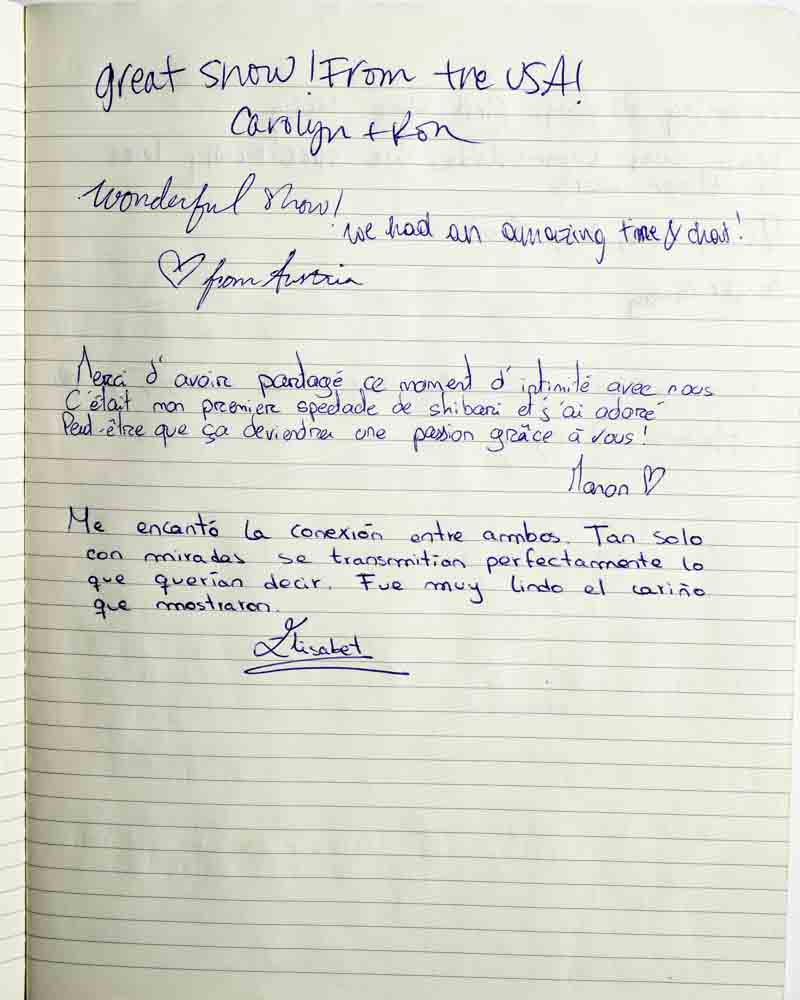 great show! From the USA!
Carolyn + Ron
Wonderful show!
we had an amazing time & chat!
♡ from Austria
Merci d'avoir partagé ce moment d'intimité avec nous
C'était mon premiere spectacle de shibari et j'ai adoré
Peut-être que ça deviendra une passion grâce à vous!
Manon ♡
Me encantó la conexión entre ambos. Tan solo
con miradas se transmitian perfectamente lo
que querían decir. Fue muy lindo el cariño
que mostraron.
Elisabet